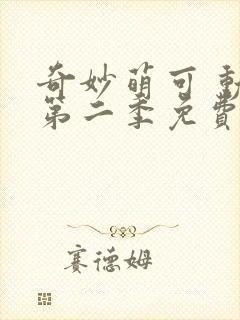 奇妙萌可
第二季免費
賽德姆